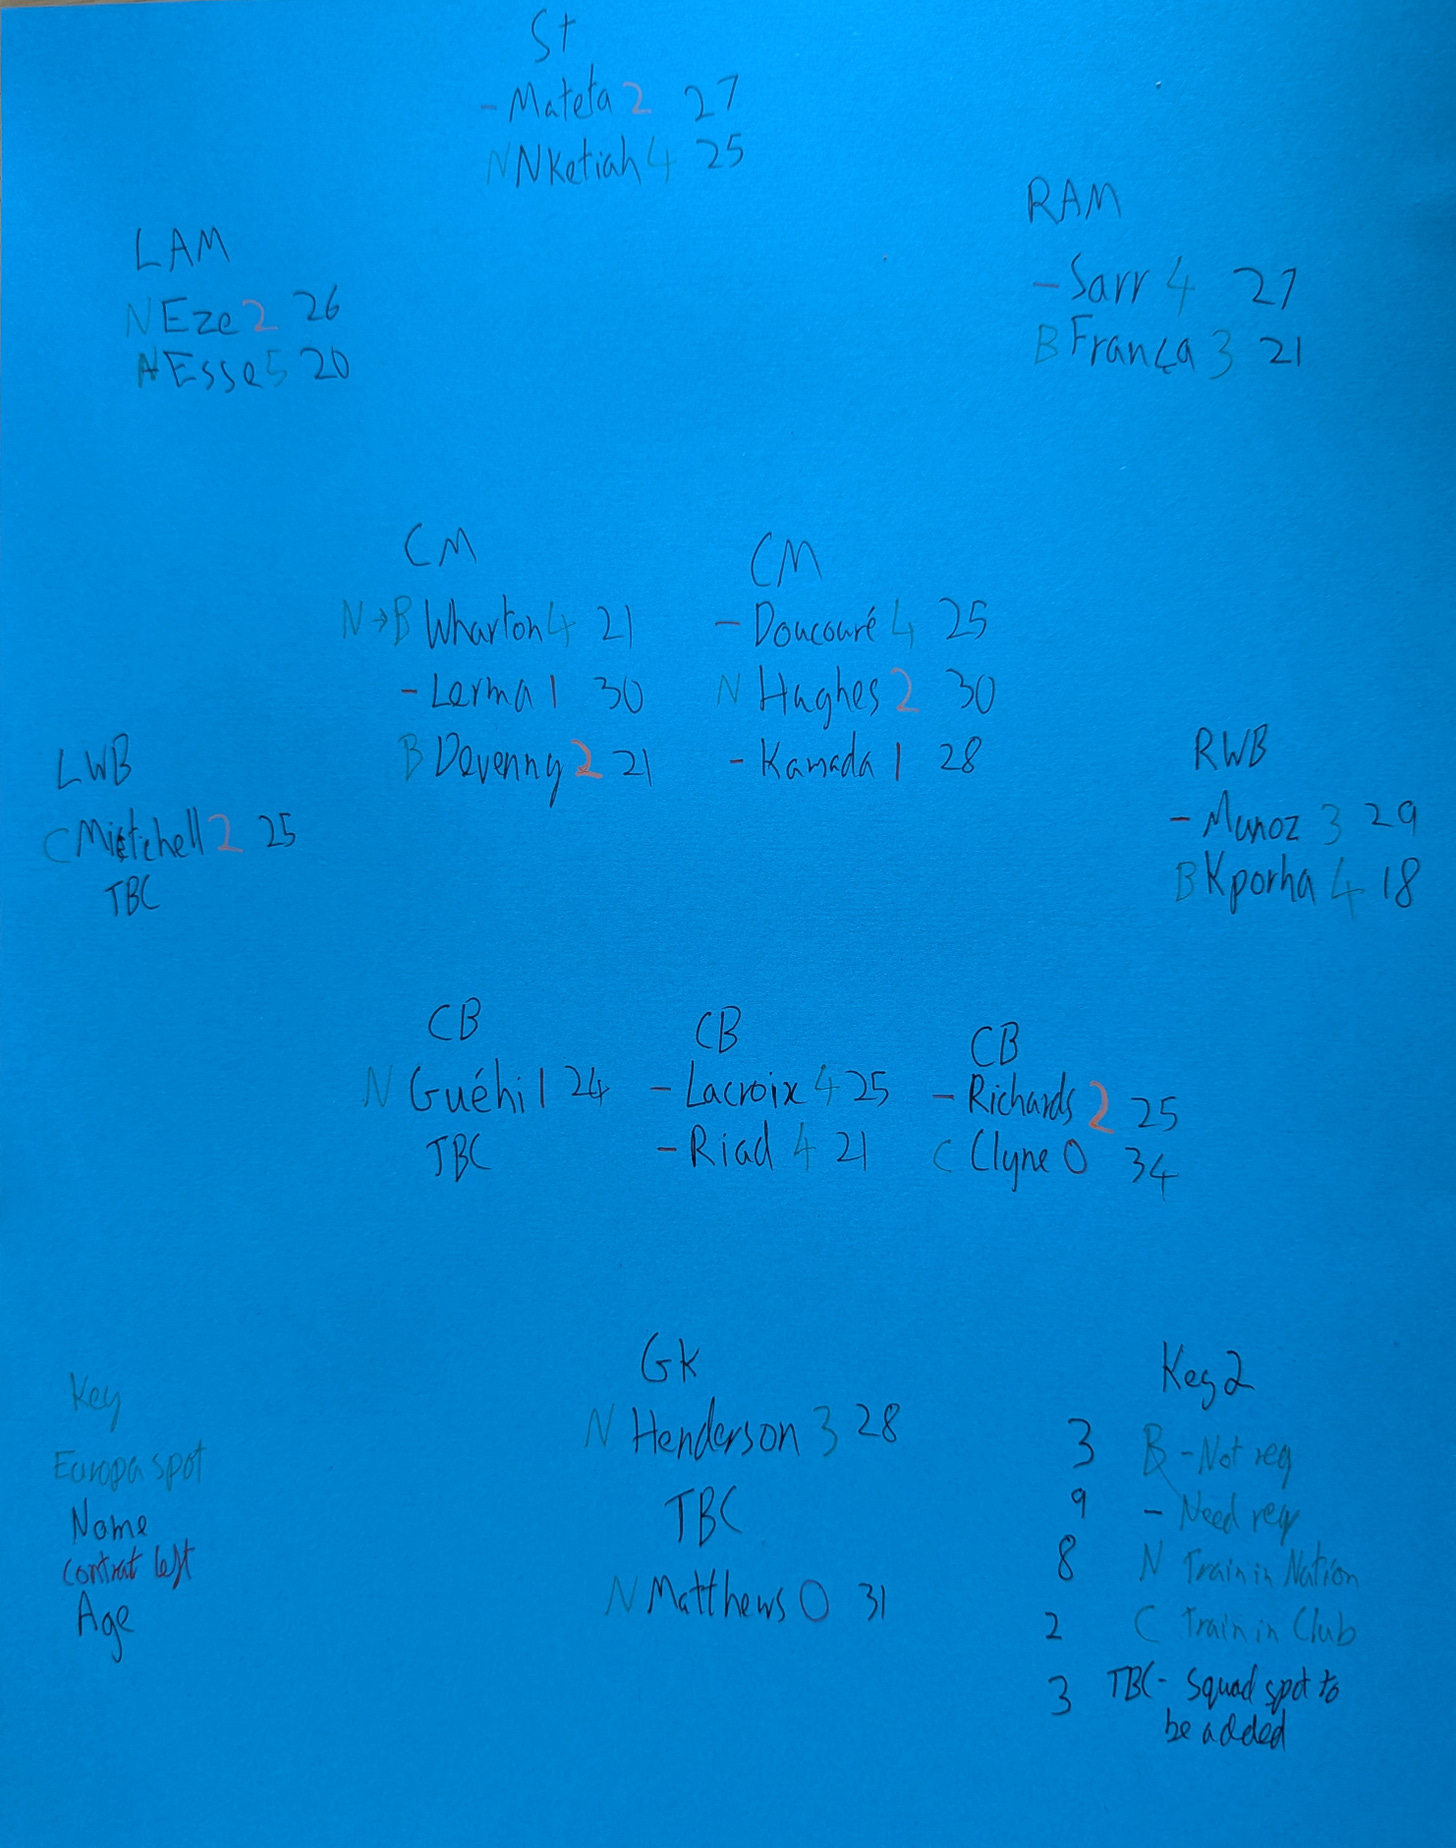 St
- Mateta 2 27
N Nketiah 4 25
LAM
N Eze 2 26
N Esse 5 20
RAM
- Sarr 4 27
B França 3 21
CM
N → B Wharton 4 21
- Lerma 1 30
B Devenny 2 21
CM
- Doucouré 4 25
N Hughes 2 30
- Kamada 1 28
LWB
C Mitchell 2 25
TBC
RWB
- Munoz 3 29
B Kporha 4 18
CB
N Guéhi 1 24
TBC
CB
- Lacroix 4 25
- Riad 4 21
CB
- Richards 2 25
C Clyne 0 34
GK
N Henderson 3 28
TBC
N Matthews 0 31
Key
Europa spot
Name
contrat left
Age
Key 2
3 B - Not req
9 - Need req
8 N Train in Nation
2 C Train in Club
3 TBC - Squad spot to
be added